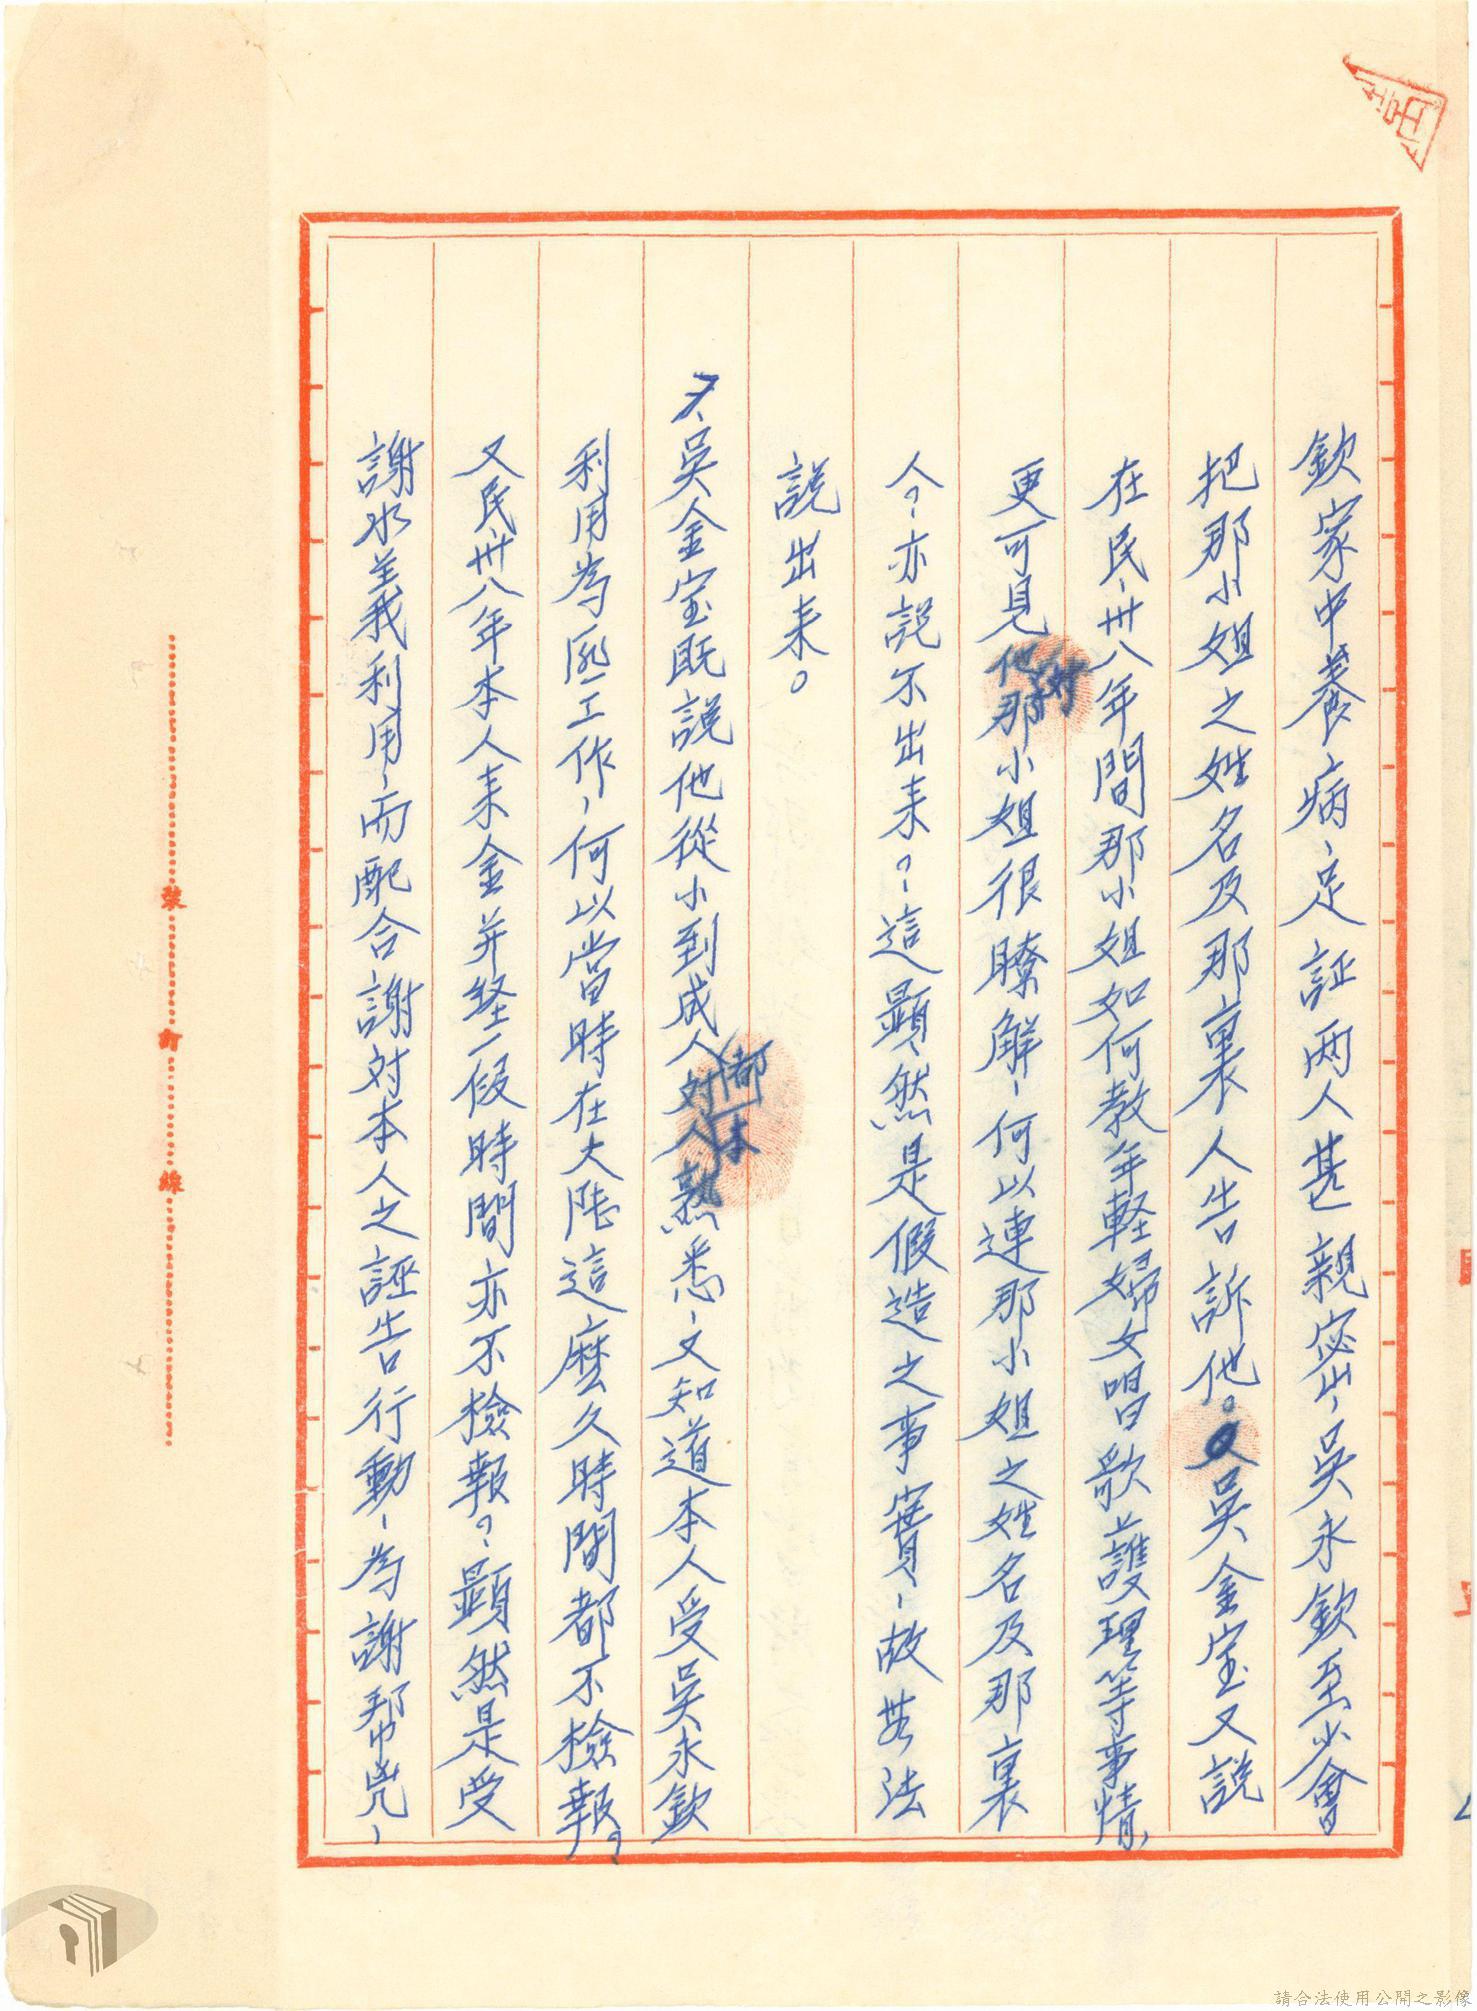 欽家中養病、足証兩人甚親密、吳永欽至少會
把那小姐之姓名及那裏人告訴他。吳金宝又説
在民、卅八年間那小姐如何教年軽婦女唱歌護理等事情、
更可見他対那小姐很瞭解、何以連那小姐之姓名及那裏
人？亦説不出来？、這顕然是假造之事實、故無法
説出来。
7、吳金宝既説他從小到成人都対本人熟悉、又知道本人受吳永欽
利用為匪工作、何以當時在大陸這麼久時間都不檢報？
又民卅八年本人来金并経一段時間亦不檢報？、顕然是受
謝水義利用、而配合謝対本人之誣告行動、為謝幫兇、
裝
訂
線
請合法使用公開之影像